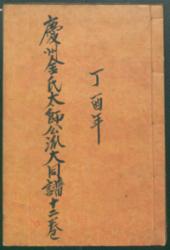 丁酉年
慶州金氏太師公派大同譜十二卷